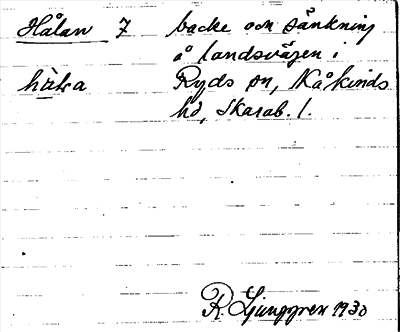 Hålan 7 backe och sänkning
å landsvägen i
håla Ryds sn, Kåkinds
hd, Skarab. l.
R. Ljunggren 1930